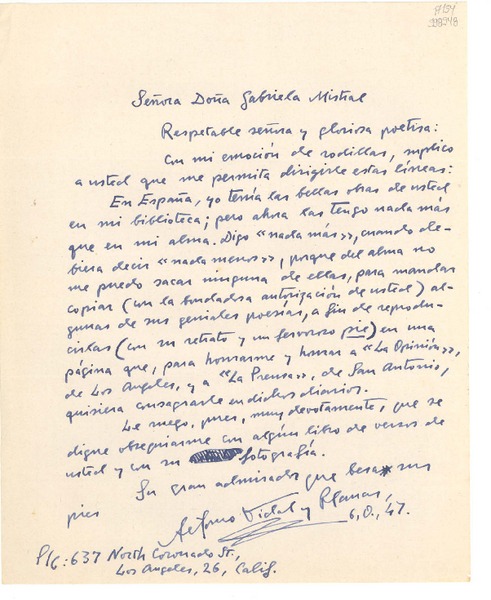 Señora Doña Gabriela Mistral
Respetable señora y gloriosa poetisa:
Con mi emoción de rodillas, suplico
a usted que me permita dirigirle estas líneas:
En España, yo tenía las bellas obras de usted
en mi biblioteca; pero ahora las tengo nada más
que en mi alma. Digo «nada más», cuando de-
biera decir «nada menos», porque del alma no
me puedo sacar ninguna de ellas, para mandar
copiar (con la bondadosa autorización de usted) al-
gunas de sus geniales poesías, a fin de reprodu-
cirlas (con su retrato y un fervoroso pie) en una
página que, para honrarme y honrar a «La Opinión»,
de Los Angeles, y a «La Prensa», de San Antonio,
quisiera consagrarle en dichos diarios.
Le ruego, pues, muy devotamente, que se
digne obsequiarme con algún libro de versos de
usted y con su fotografía.
Su gran admirador que besa sus
pies
Alfonso Vidal y Planas,
6, O., 47.
S/c: 637 North Coronado St.,
Los Angeles, 26, Calif.